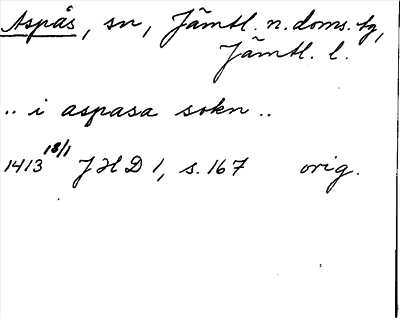 Aspås, sn, Jämtl. n. doms. tg,
Jämtl. l.
.. i aspasa sokn ..
1413 18/1 JHD 1, s. 167 orig.